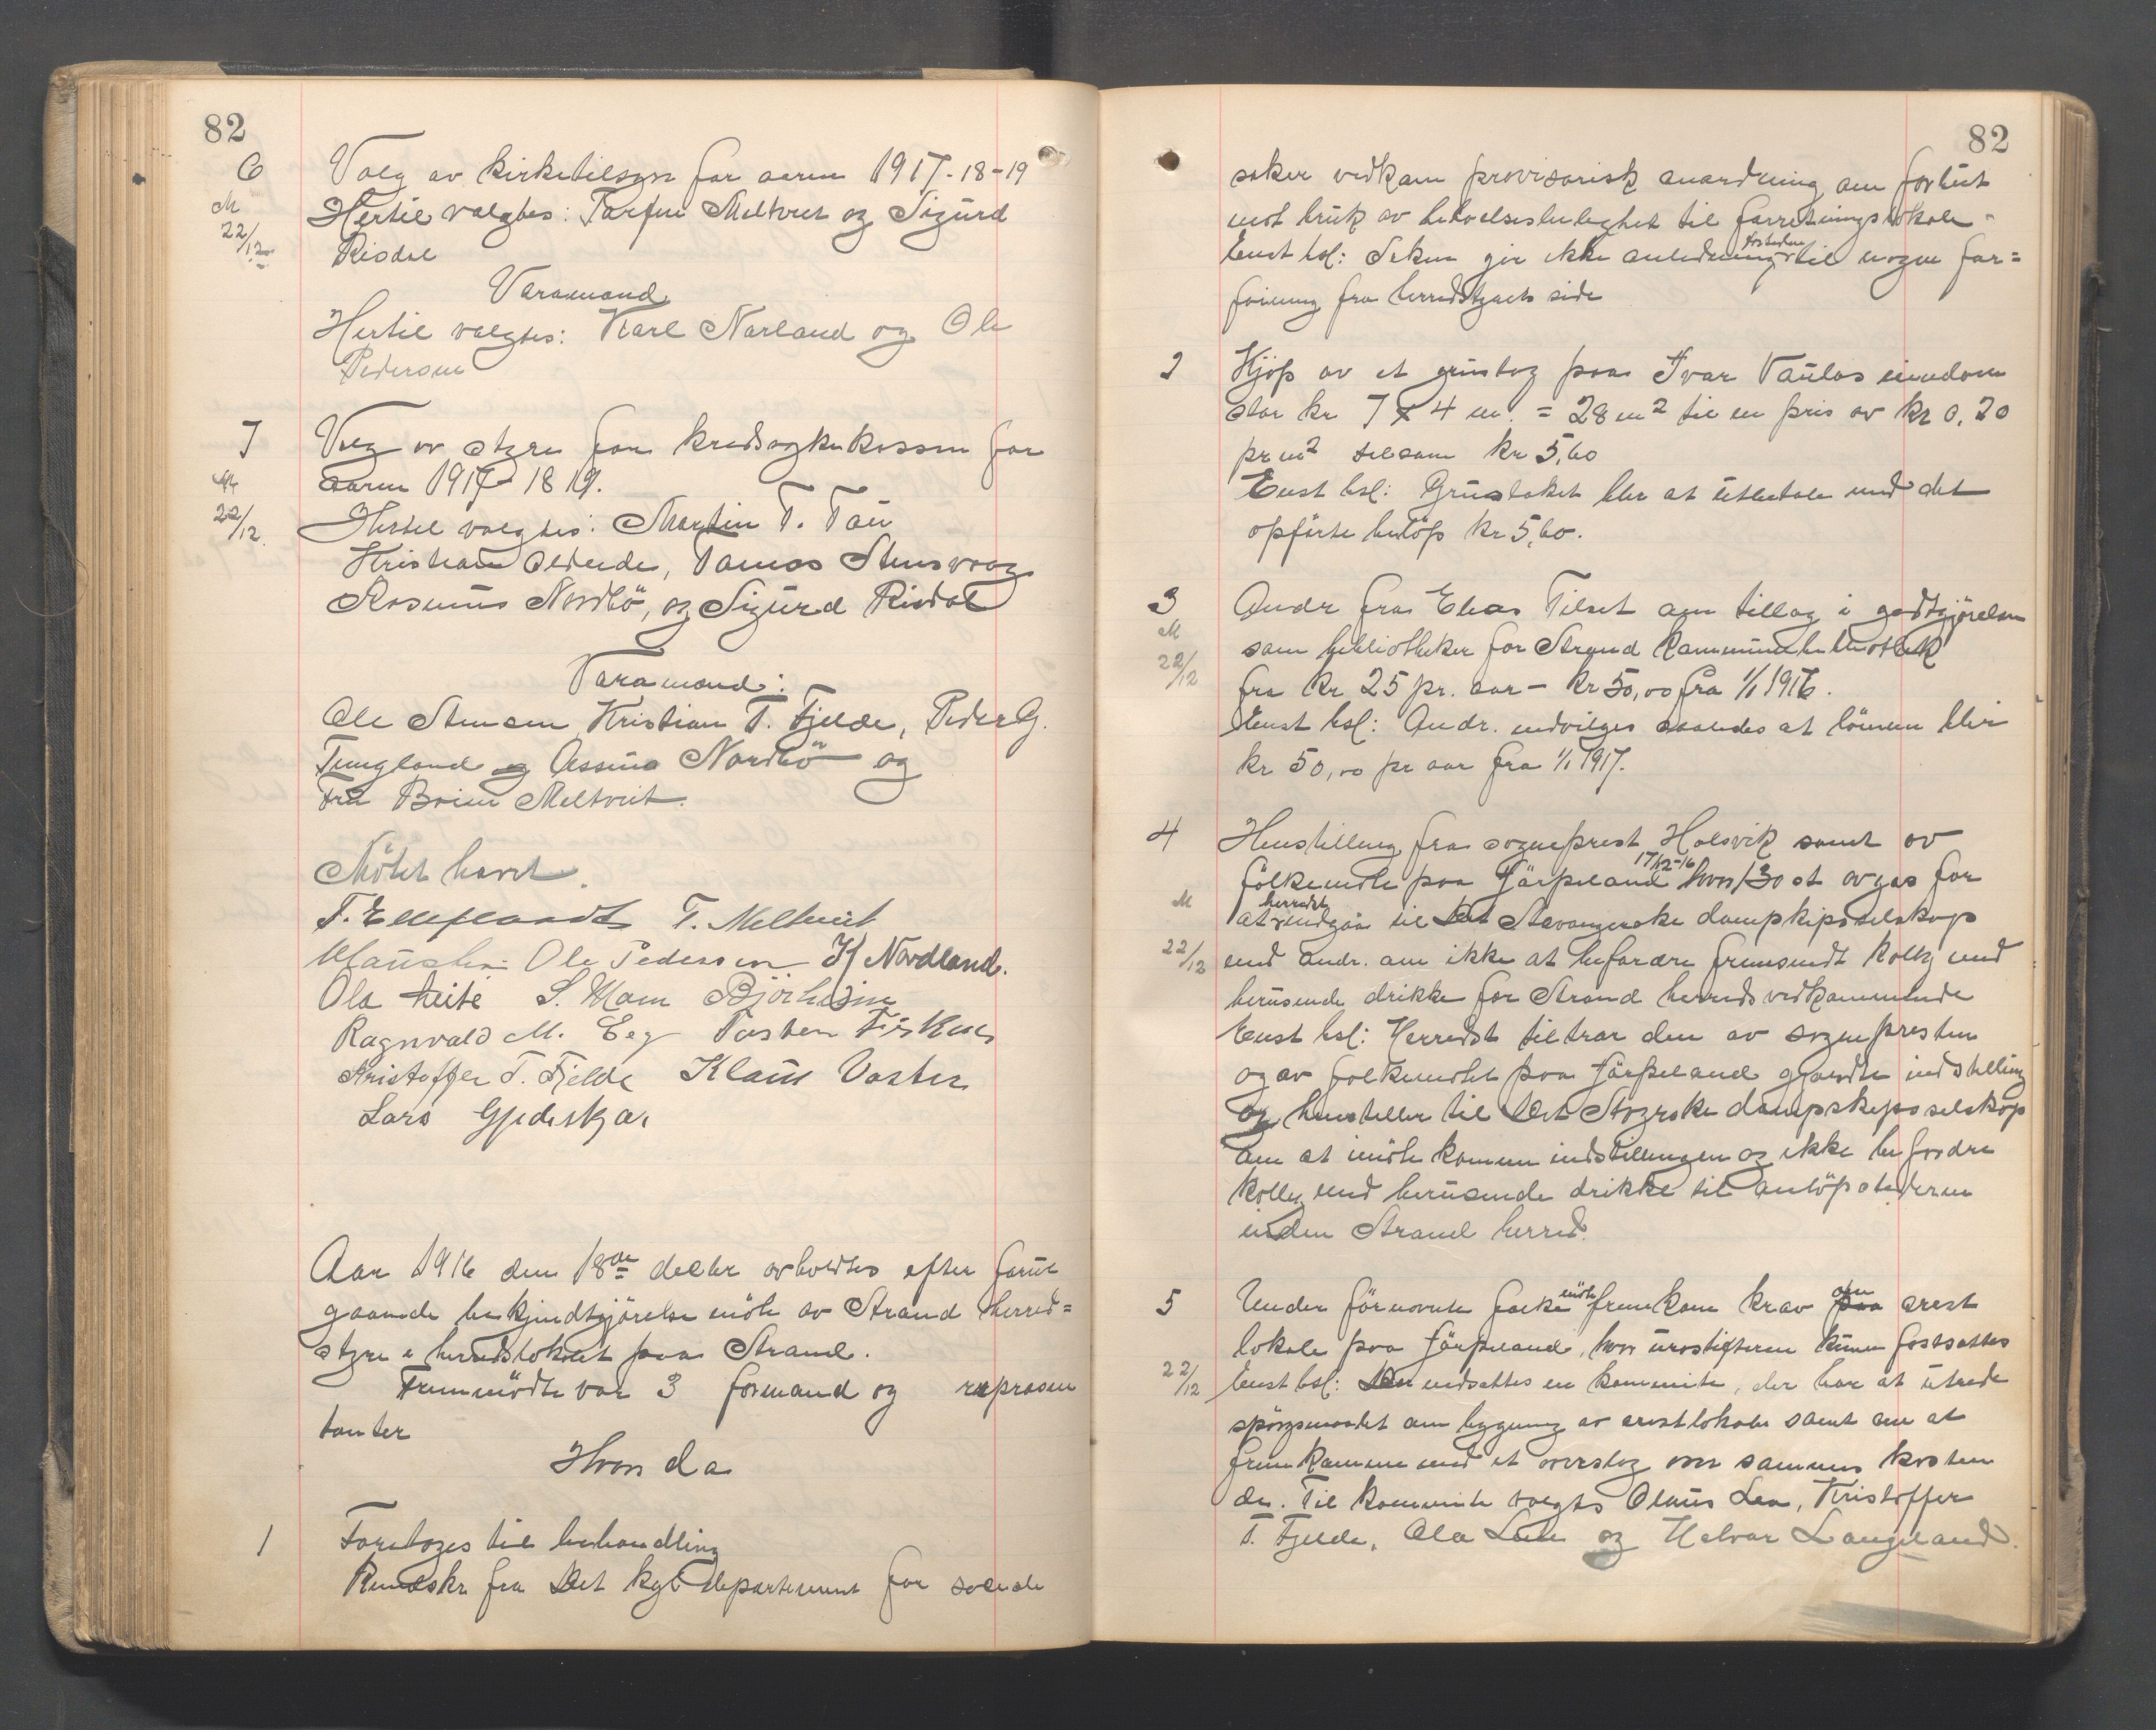 82
6
M
22/12
Valg av kirketilsyn for aaren 1917-18-19
Hertil valgtes: Torfin Meltveit og Sigurd
Risdal
Varamænd
Hertil valgtes: Karl Norland og Ole
Pedersen
7
M
22/12.
Valg av styre for kredssykekassen for
aaren 1917-18 19.
Hertil valgtes: Martin T. Tau
Kristian, Tomas Stensvoog
Rasmus Nordbö, og Sigurd Risdal
Varamænd:
Ole Stensen Kristian T. Fjelde, Peder G.
Tungland og Rasmus Nordbö og
Fru Meltveit.
Mötet hævet.
T. T. Meltveit
Ole Pedersen K Nordland.
Ola S. Mam Björheim
Ragnvald M. Eeg Torsten Fisknes
Kristoffer T. Fjelde Klaus Vaster
Lars Gjedrskjar
Aar 1916 den 18de decbr avholdtes efter forut
gaaende bekjendtgjörelse möte av Strand herred=
styre i herredslokalet paa Strand.
Fremmödte var 3 formænd og repræsen
tanter
Hvor da
1
Foretoges til behandling
Rundskr fra Det kgl departement for sociale
82
saker vedkom provisorisk anordning om forbud
mot bruk av beboelsesleilighet til forretningslokale.
Enst bsl: Saken gir ikke anledning til nogen for=
föining fra herredstyrets side
2
Kjöp av et grustag paa Ivar Taulos eiendom
stor kr 7 x 4 m. = 28 m2 til en pris av kr 0.20
pr m2 tilsam kr 5,60
Enst bsl: Grustaket blir at utbetale med det
opförte belöp kr 5,60.
3
M
22/12
Andr fra Elias Tilset om tillæg i godtgjörelsen
som bibliotheker for Strand kommunebibliothek
fra kr 25 pr. aar - kr 50,00 fra 1/1 1916.
Enst bsl: Andr. indvilges saaledes at lönnen blir
kr 50,00 pr aar fra 1/1 1917.
4
M
22/12
Henstilling fra sogneprest Halsvik samt av
folkemöte paa Jörpeland 17/12-16 hvor 130 st avgas for
at herredst indgaar til Det Stavangerske dampskipsselskap
med andr. om ikke at befordre fremsendt kolly med
berusende drikke for Strand herreds vedkommende
Enst bsl: Herredst tiltrær den av sognepresten
og av folkemötet paa Jörpeland gjordte indstilling
og henstiller til Det Stvgrske dampskipsselskap
om at imöte komme indstillingen og ikke befordre
kolly med berusende drikke til anlöpstederne
inden Strand herred.
5
22/12
Under förnevnte folkemöte fremkom krav om arest
lokale paa Jörpeland, hvor urostifterne kunne fastsættes
Enst bsl: Der nedsættes en kommite, der har at utrede
spörgsmaalet om bygning av arestlokale samt om at
fremkomme med et overslag over sammes kosten
de. Til kommite valgtes Olaus Lea, Kristoffer
T. Fjelde, Ola og Halvor Langeland.